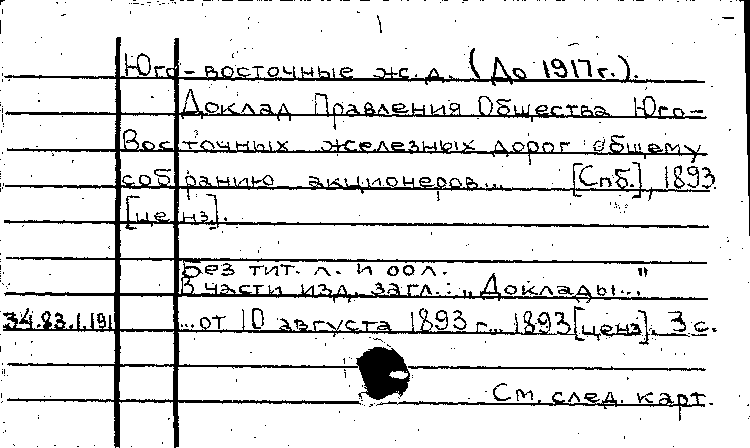 Юго-восточные ж.д. (До 1917г.).
Доклад Правления Общества Юго-
Восточных железных дорог общему
собранию акционеров... [Спб.], 1893
[ценз].
Без тит. л. и обл.
В части изд. загл.: „Доклады..."
34.83.1.191 ...от 10 августа 1893 г... 1893 [ценз]. 3 с.
См. след. карт.